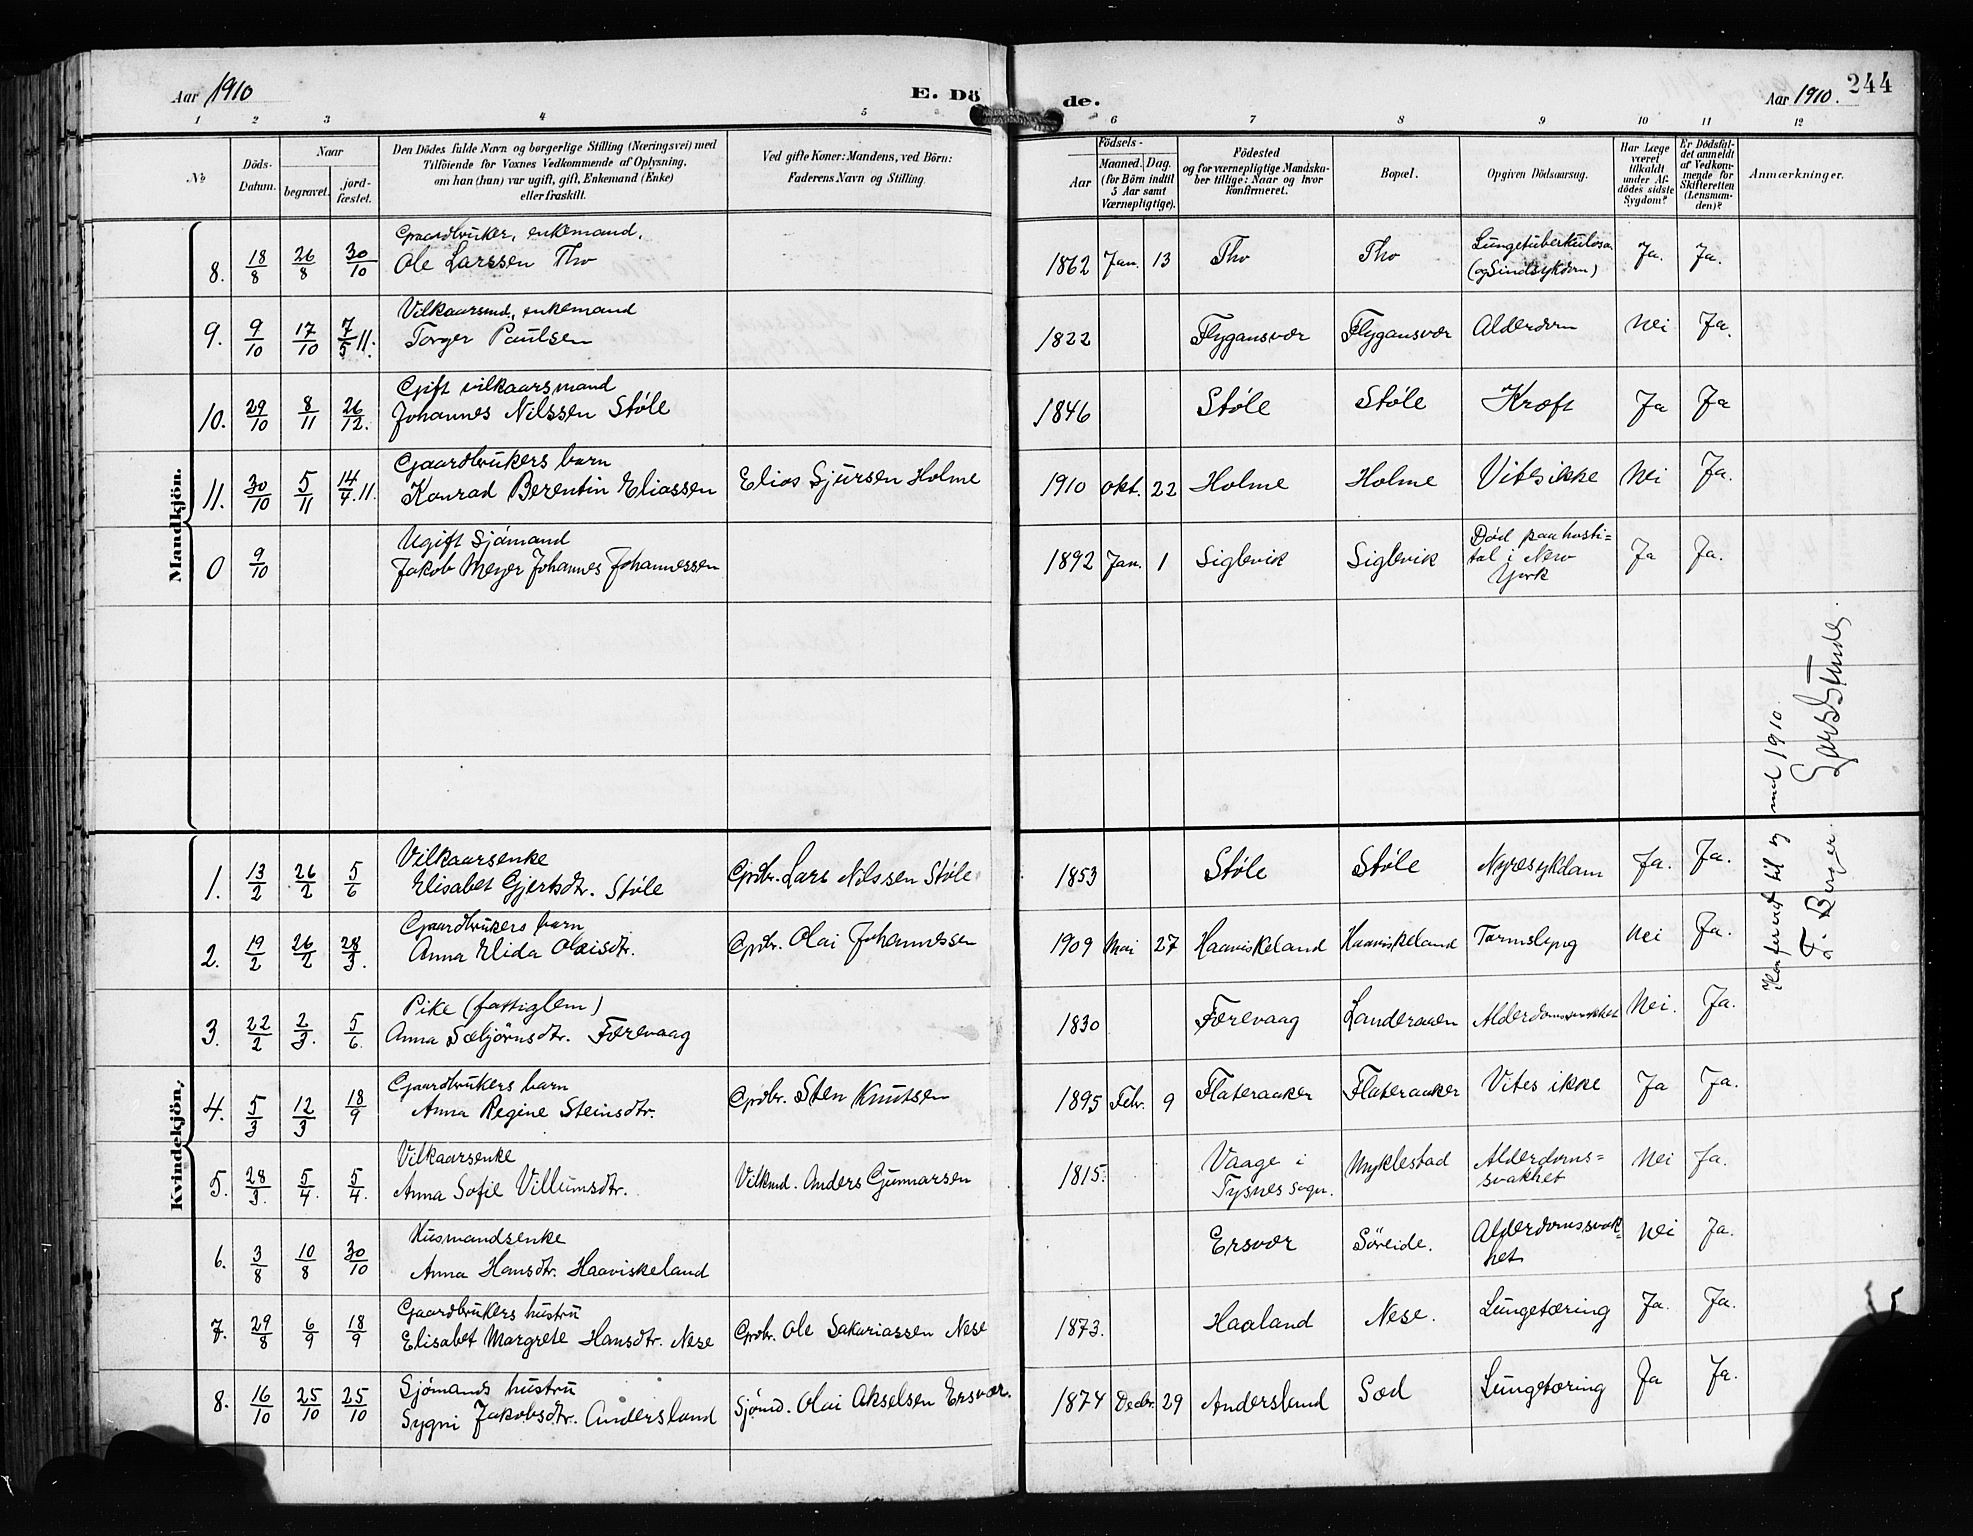 Aar 1910 E. Dö de. Aar 1910. 244
1 2 3 4 5 6 7 8 9 10 11 12
No
Döds-Datum.
Naar
begravet.
jord-fæstet.
Den Dödes fulde Navn og borgerlige Stilling (Næringsvei) med
Tilföiende for Voxnes Vedkommende af Oplysning,
om han (hun) var ugift, gift, Enkemand (Enke)
eller fraskilt.
Ved gifte Koner: Mandens, ved Börn:
Faderens Navn og Stilling.
Födsels-
Aar
Maaned. Dag.
(for Börn indtil
5 Aar samt
Værnepligtige).
Födested
og for værnepligtige Mandska-
ber tillige: Naar og hvor
konfirmeret.
Bopæl.
Opgiven Dödsaarsag.
Har Læge
været
tilkaldt
under Af-
dödes sidste
Sygdom?
Er Dödsfal-
det anmeldt
af Vedkom-
mende for
Skifteretten
(Lensman-
den)?
Anmærkninger.
Mandkjön.
Gaardbruker, enkemand,
8. 18/8 26/8 30/10 Ole Larssen Tho 1862 Jan. 13 Tho Tho Lungetuberkulose (og Sindsykdom) Ja. Ja.
Vilkaarsmd, enkemand
9. 9/10 17/10 7/5 11. Torger Paulsen 1822 Flygansvær Flygansvær Alderdom Nei Ja.
Gift vilkaarsmand
10. 29/10 8/11 26/12. Johannes Nilssen Støle 1846 Støle Støle Kræft Ja Ja
Gaardbrukers barn
11. 30/10 5/11 14/4.11. Konrad Berentin Eliassen Elias Sjursen Holme 1910 Okt. 22 Holme Holme Vites ikke Nei Ja.
Ugift Sjømand
0 9/10 Jakob Meyer Johannes Johannessen 1892 Jan. 1 Siglevik Siglevik Død paa hosti=
tal i New
York Ja Ja.
Kvindekjön.
Vilkaarsenke
1. 13/2 26/2 5/6 Elisabet Gjertsdtr. Støle Grdbr. Lars Nilssen Støle 1853 Støle Støle Nyresykdam Ja. Ja.
Gaardbrukers barn
2. 19/2 26/2 28/3. Anna Elida Olaisdtr. Grdbr. Olai Johannessen 1909 Mai 27 Haaviskeland Haaviskeland Tarmslyng Nei Ja.
Pike (fattiglem)
3. 22/2 2/3. 5/6. Anna Sæbjörnsdtr. Færevaag 1830 Færevaag Landeraaen Alderdomssvakhet Nei. Ja.
Gaardbrukers barn
4. 5/3 12/3 18/9 Anna Regine Steinsdtr. Grdbr. Sten Knutsen 1895 Febr. 9 Flateraaker Flateraaker Vites ikke Ja Ja.
Vilkaarsenke
5. 28/3. 5/4. 5/4. Anna Sofie Villumsdtr. Vilkmd. Anders Gunnarsen 1815. Vaage i
Tysnes sogn. Myklestad Alderdoms=
svakhet Nei Ja.
Husmandsenke
6. 3/8 10/8 30/10 Anna Hansdtr. Haaviskeland Ersvær Söreide. Alderdomssvak=
het Nei Ja.
Gaardbrukers hustru
7. 29/8 6/9 18/9 Elisabet Margrete Hansdtr. Nese Grdbr. Ole Sakariassen Nese 1873. Haaland Nese. Lungetæring Ja. Ja.
Sjömands hustru
8. 16/10 25/10 25/10 Sygni Jakobsdtr. Andersland Sjömd. Olai Akselsen Ersvær. 1874 Decbr. 29 Andersland Sæd Lungetæring Ja Ja.
Konferert til og med 1910.
F. Berger. Lars Tunde.